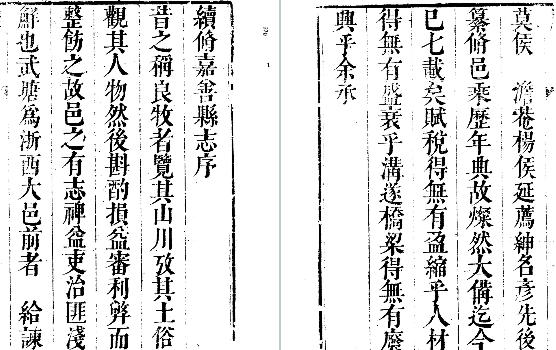 續脩嘉善縣志序
昔之稱良牧者覽其山川攷其土俗
觀其人物然後斟酌損益審利弊而
整飭之故邑之有志裨益吏治匪淺
鮮也武塘爲浙西大邑前者　給諫
莫侯　澹菴楊侯延薦紳名彥先後
纂脩邑乘歷年典故燦然大備迄今
已七載矣賦稅得無有盈縮乎人材
得無有盛衰乎溝遂橋梁得無有廢
興乎余承